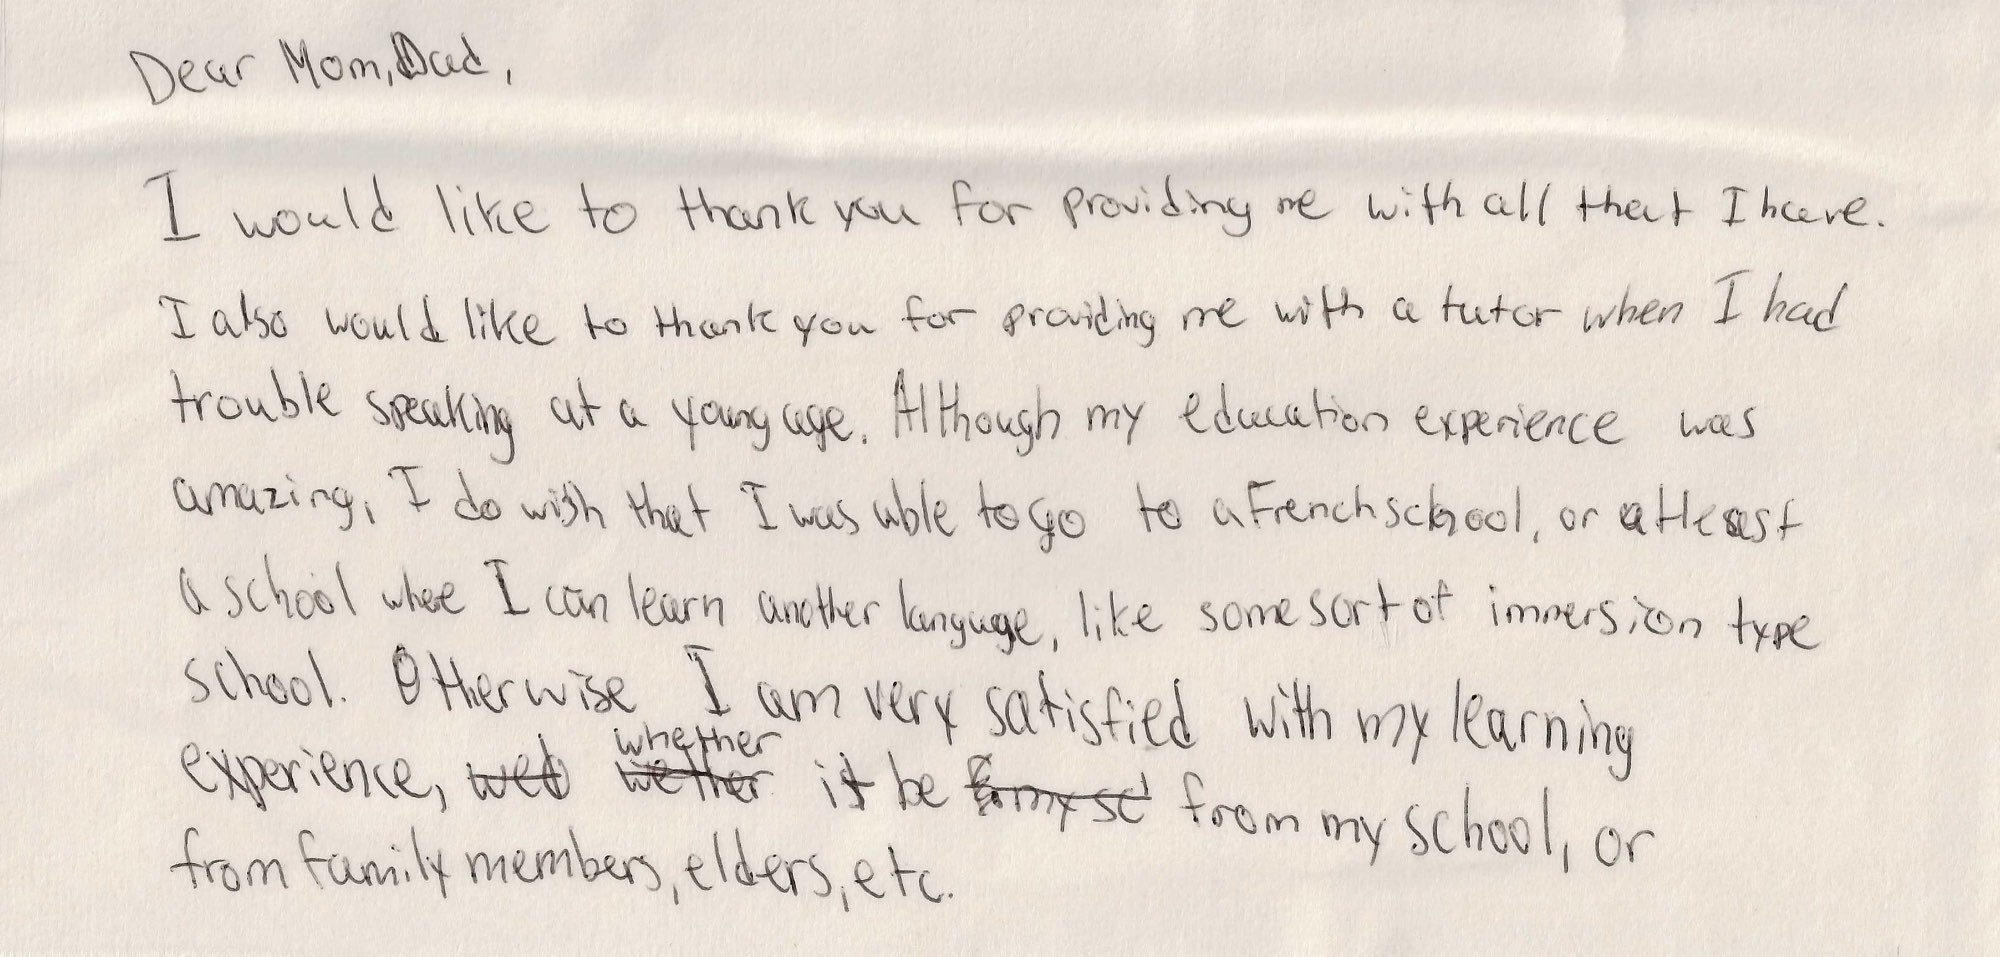 Dear Mom, Dad,
I would like to thank you for providing me with all that I have.
I also would like to thank you for providing me with a tutor when I had
trouble speaking at a young age. Although my education experience was
amazing, I do wish that I was able to go to a French school, or at least
a school where I can learn another language, like some sort of immersion type
school. Otherwise I am very satisfied with my learning
experience, whether it be from my school, or
from family members, elders, etc.